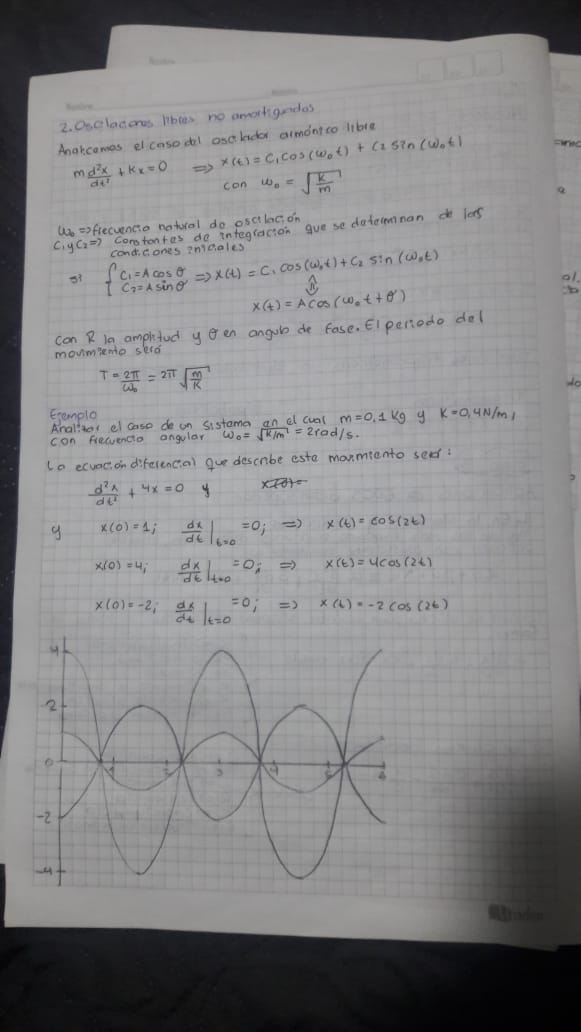 2. Oscilaciones libres no amortiguadas
Analicemos el caso del oscilador armóntco libre
m d²x/dt² + Kx = 0 ⇒ x(t) = C₁ cos(ω₀t) + C₂ sin(ω₀t)
con ω₀ = √(K/m)
ω₀ ⇒ frecuencia natural de oscilación
C₁ y C₂ ⇒ constantes de integración que se determinan de las
condiciones iniciales
si { C₁ = A cos θ
C₂ = A sin θ ⇒ x(t) = C₁ cos(ω₀t) + C₂ sin(ω₀t)
⇕
x(t) = A cos(ω₀t + θ)
con R la amplitud y θ en angulo de fase. El periodo del
movimiento será
T = 2π/ω₀ = 2π √(m/K)
Ejemplo
Analizar el caso de un sistama en el cual m = 0,1 Kg y K = 0,4 N/m,
con frecuencia angular ω₀ = √K/m = 2 rad/s.
La ecuación diferencial que describe este movimiento será:
d²x/dt² + 4x = 0 y x(0)=
y x(0) = 1; dx/dt |t=0 = 0; ⇒ x(t) = cos(2t)
x(0) = 4; dx/dt |t=0 = 0; ⇒ x(t) = 4cos(2t)
x(0) = -2; dx/dt |t=0 = 0; ⇒ x(t) = -2 cos(2t)
4
-2
0 1 2 3 4 5 6
-2
-4